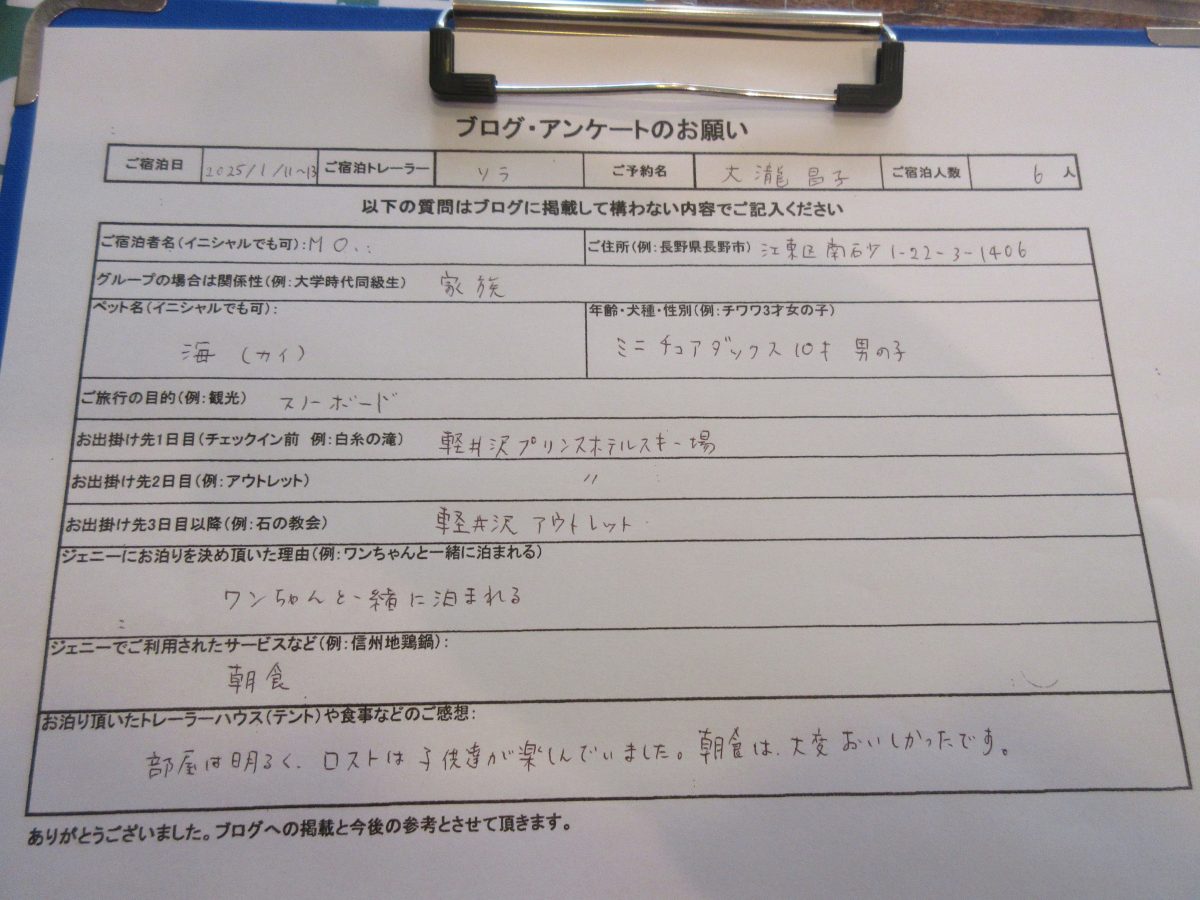 ブログ・アンケートのお願い
ご宿泊日 2025/1/11~13 ご宿泊トレーラー ソラ ご予約名 大瀧 昌子 ご宿泊人数 6 人
以下の質問はブログに掲載して構わない内容でご記入ください
ご宿泊者名(イニシャルでも可):M O. ご住所(例:長野県長野市) 江東区南砂1-22-3-1406
グループの場合は関係性(例:大学時代同級生) 家族
ペット名(イニシャルでも可): 年齢・犬種・性別(例:チワワ3才女の子)
海 (カイ) ミニチュアダックス 10才 男の子
ご旅行の目的(例:観光) スノーボード
お出掛け先1日目(チェックイン前 例:白糸の滝) 軽井沢プリンスホテルスキー場
お出掛け先2日目(例:アウトレット) 〃
お出掛け先3日目以降(例:石の教会) 軽井沢 アウトレット
ジェニーにお泊りを決め頂いた理由(例:ワンちゃんと一緒に泊まれる)
ワンちゃんと一緒に泊まれる
ジェニーでご利用されたサービスなど(例:信州地鶏鍋):
朝食
お泊り頂いたトレーラーハウス(テント)や食事などのご感想:
部屋は明るく、ロストは子供達が楽しんでいました。朝食は、大変おいしかったです。
ありがとうございました。ブログへの掲載と今後の参考とさせて頂きます。